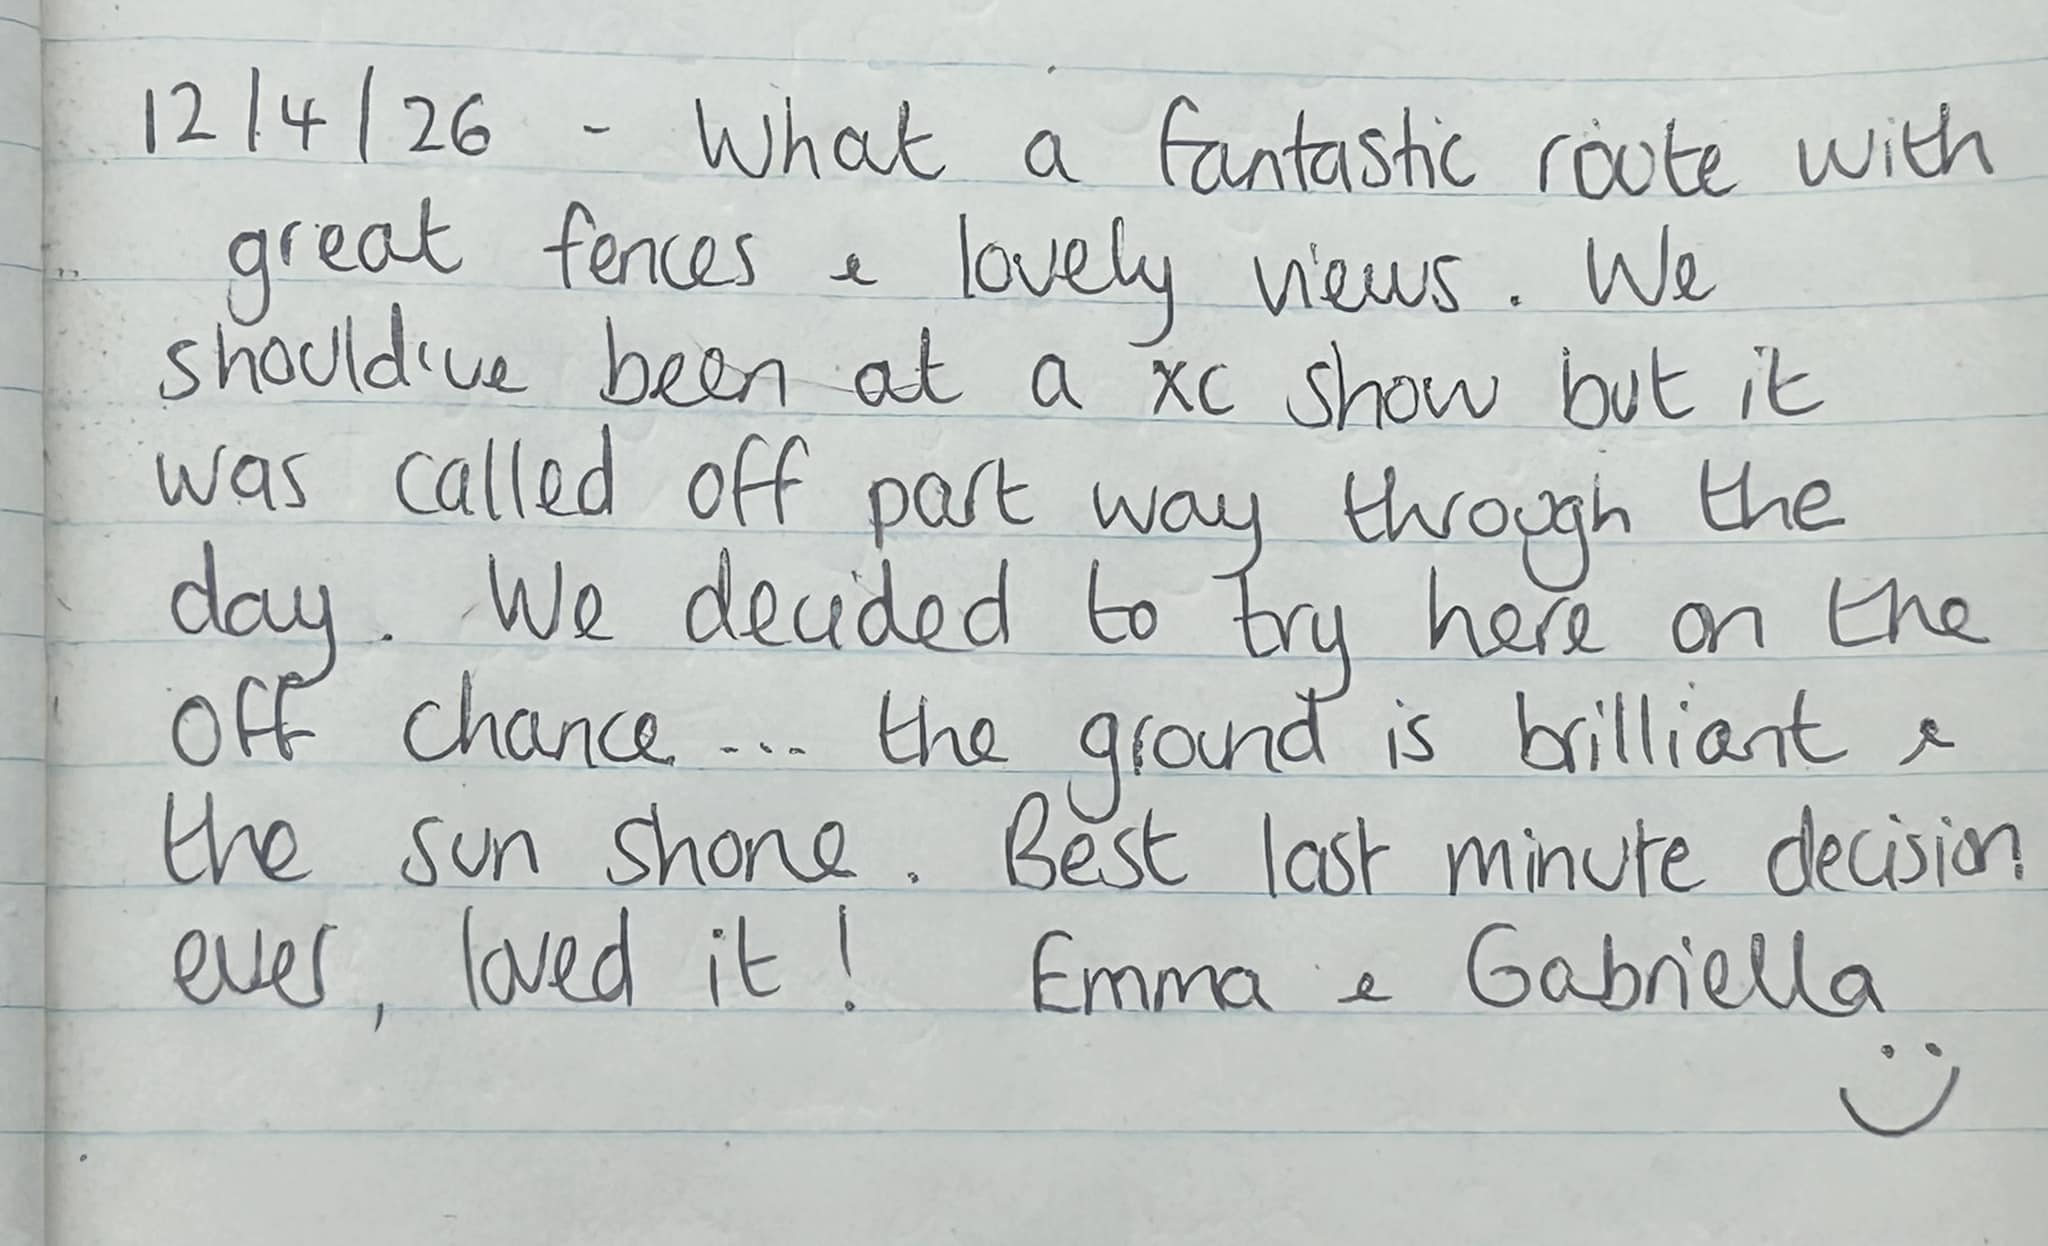 12/4/26 - What a fantastic route with
great fences & lovely views. We
should've been at a xc show but it
was called off part way through the
day. We decided to try here on the
off chance... the ground is brilliant &
the sun shone. Best last minute decision
ever, loved it! Emma & Gabriella